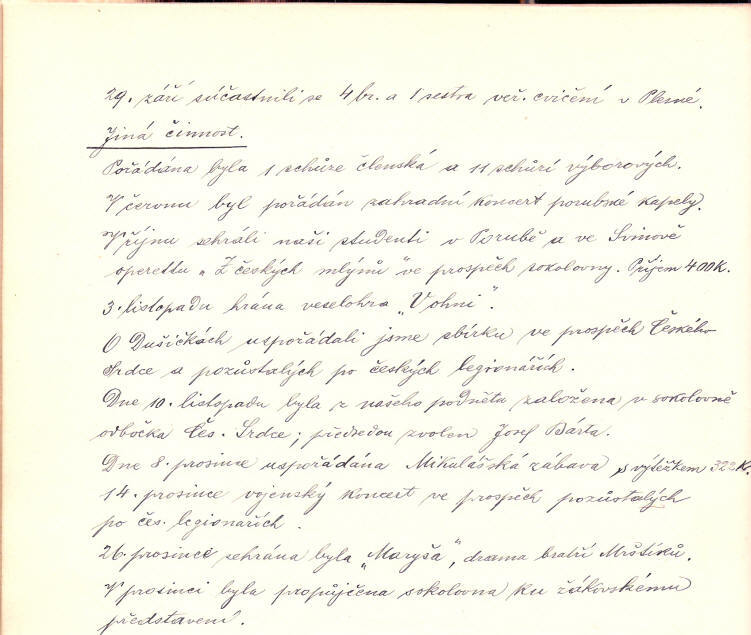 29. září súčastnili se 4 br. a 1 sestra veř. cvičení v Plesné.
Jiná činnost.
Pořádána byla 1 schůze členská a 11 schůzí výborových.
V červnu byl pořádán zahradní koncert porubské kapely.
V říjnu sehráli naši studenti v Porubě a ve Svinově
operettu „Z českých mlýnů“ ve prospěch sokolovny. Příjem 400K.
3. listopadu hrána veselohra „V ohni“.
O Dušičkách uspořádali jsme sbírku ve prospěch Českého
Srdce a pozůstalých po českých legionářích.
Dne 10. listopadu byla z našeho podnětu založena v sokolovně
odbočka Čes. Srdce; předsedou zvolen Josef Bárta.
Dne 8. prosince uspořádána Mikulášská zábava s výtěžkem 322K.
14. prosince vojenský koncert ve prospěch pozůstalých
po čes. legionářích.
26. prosince sehrána byla „Maryša“, drama bratří Mrštíků.
V prosinci byla propůjčena sokolovna ku žákovskému
představení.